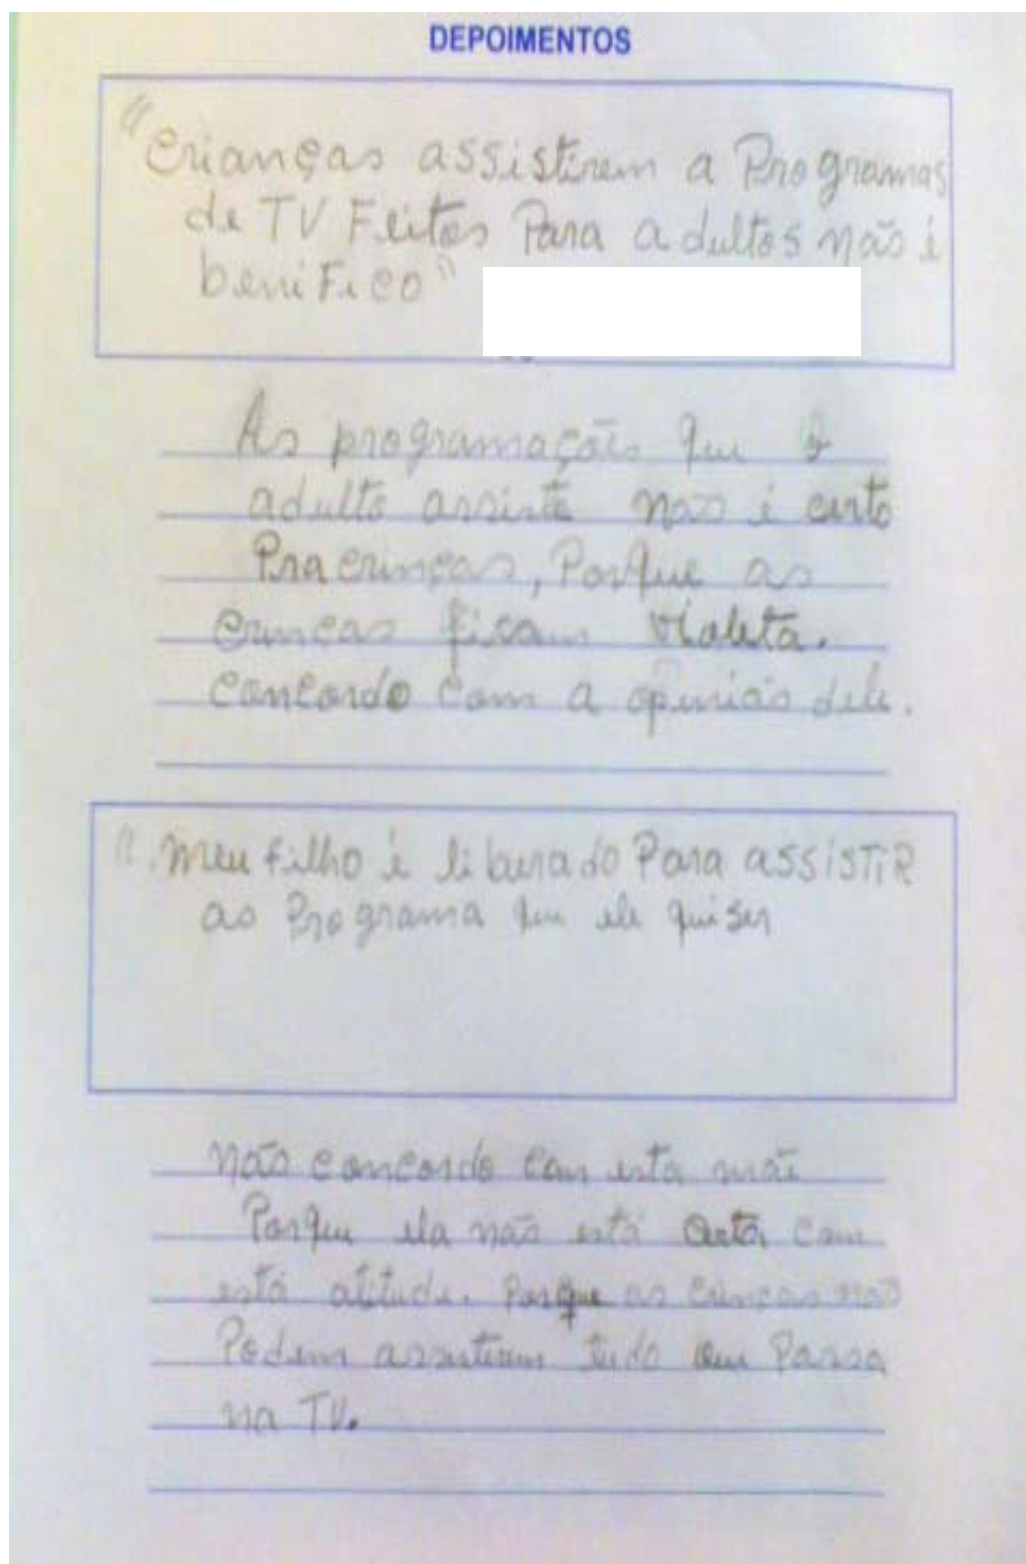 DEPOIMENTOS
"Crianças assistirem a Programas
de TV Feitos Para adultos não é
beniFico"
As programações que o
adulto assiste não é certo
Pra crinças, Porque as
crincas ficam violeta.
Concordo com a opinião dele.
". Meu filho é liberado Para assistir
ao Programa que ele quiser
não concordo com esta mãe
Porque ela não está certa com
está atitude. Porque as crincas não
Podem assistirem tudo que Passa
na TV.